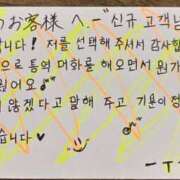 のお客様 へ. ー"신규 고객님
합니다! 저를 선택해 주셔서 감사합
으로 통역 대화를 해오면서 뭔가
웠어요
않겠다고 말해 주고 기분이 정
습니다 ♥
ーTー